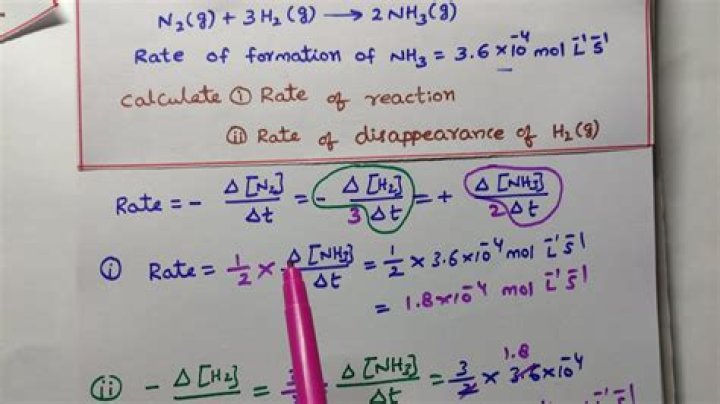 N₂(g) + 3H₂(g) ⟶ 2NH₃(g)
Rate of formation of NH₃ = 3.6 × 10⁻⁴ mol L⁻¹ S⁻¹
Calculate ⓘ Rate of reaction
ⓘⓘ Rate of disappearance of H₂(g)
Rate = - Δ[N₂]/Δt = - Δ[H₂]/3Δt = + Δ[NH₃]/2Δt
ⓘ Rate = 1/2 × Δ[NH₃]/Δt = 1/2 × 3.6×10⁻⁴ mol L⁻¹ S⁻¹
= 1.8×10⁻⁴ mol L⁻¹ S⁻¹
ⓘⓘ - Δ[H₂] = 3 Δ[NH₃]/Δt = 3/2 × 3.6×10⁻⁴ 1.8